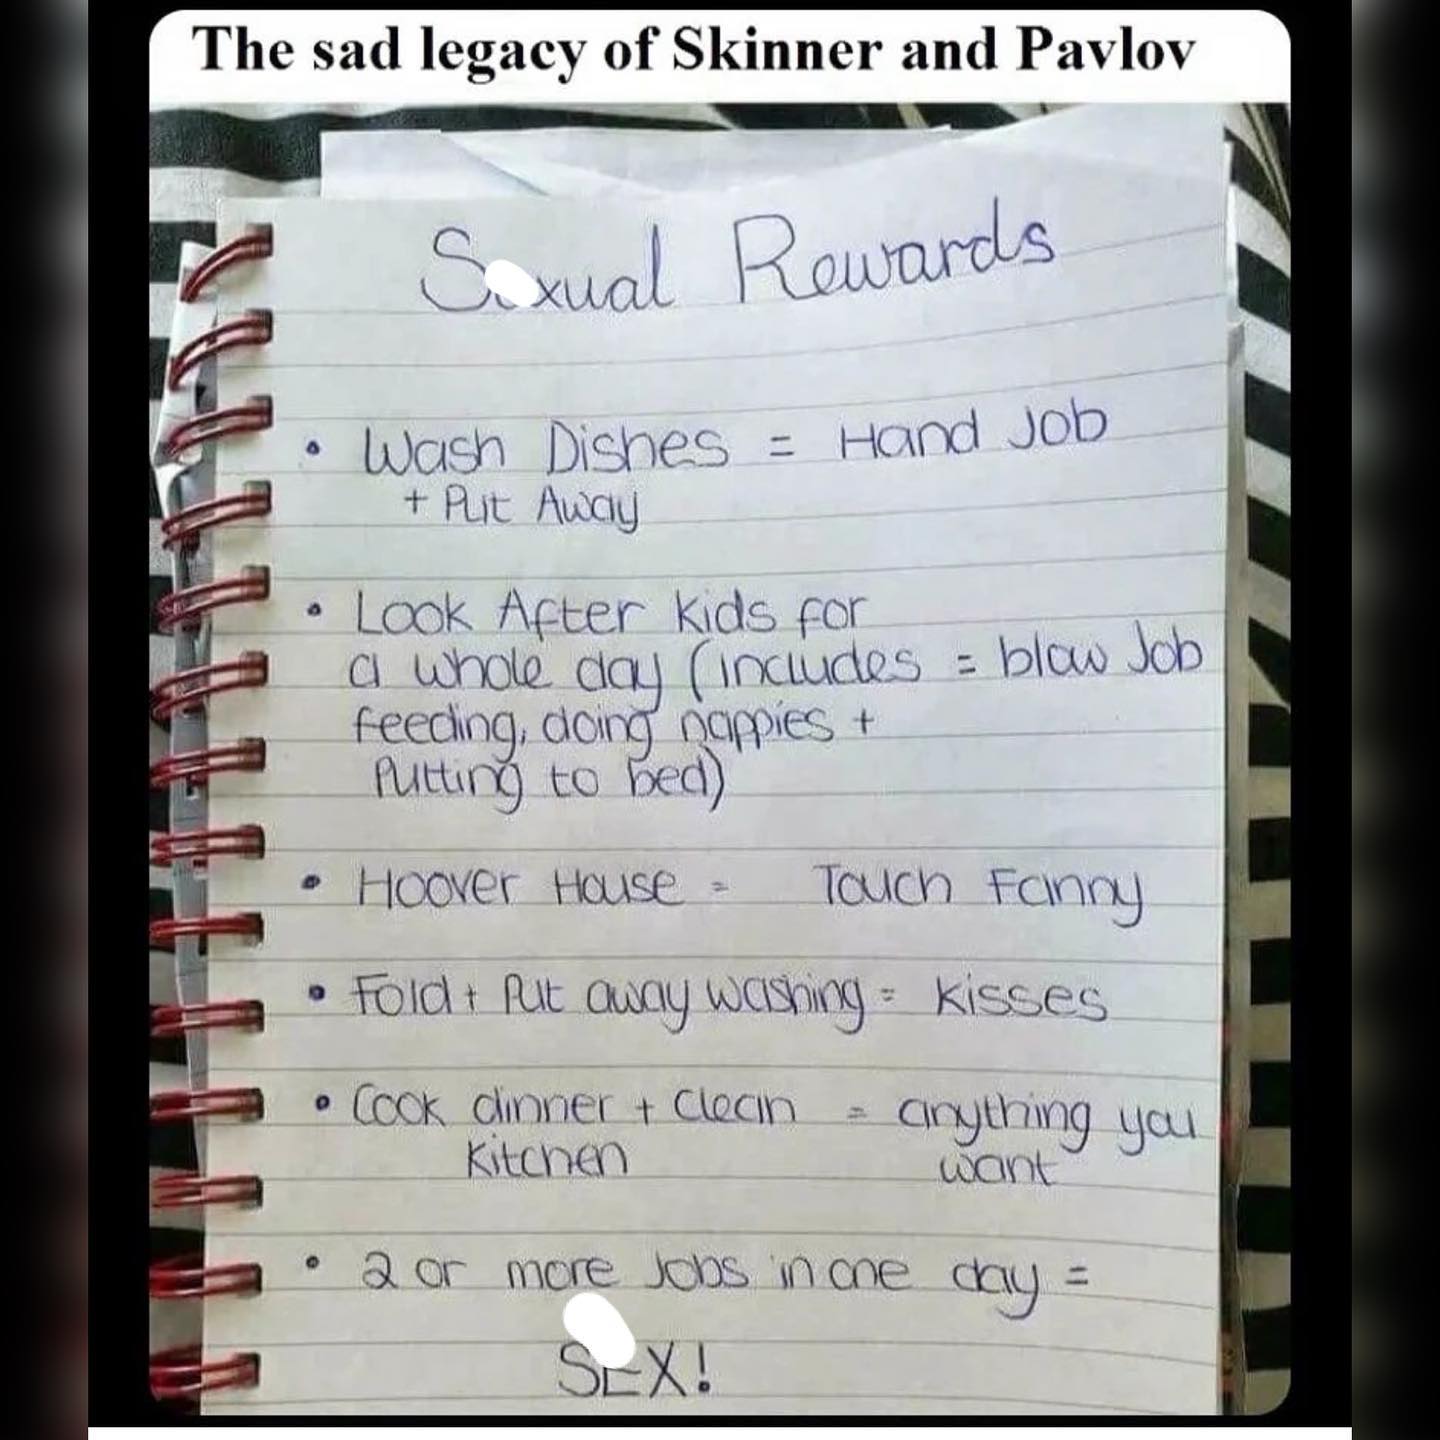 The sad legacy of Skinner and Pavlov
Sexual Rewards
• Wash Dishes = Hand Job
+ Put Away
• Look After Kids for
a whole day (includes = blow Job
feeding, doing nappies +
Putting to bed)
• Hoover House = Touch Fanny
• Fold + Put away washing = kisses
• Cook dinner + Clean = anything you
Kitchen want
• 2 or more Jobs in one day =
SEX!